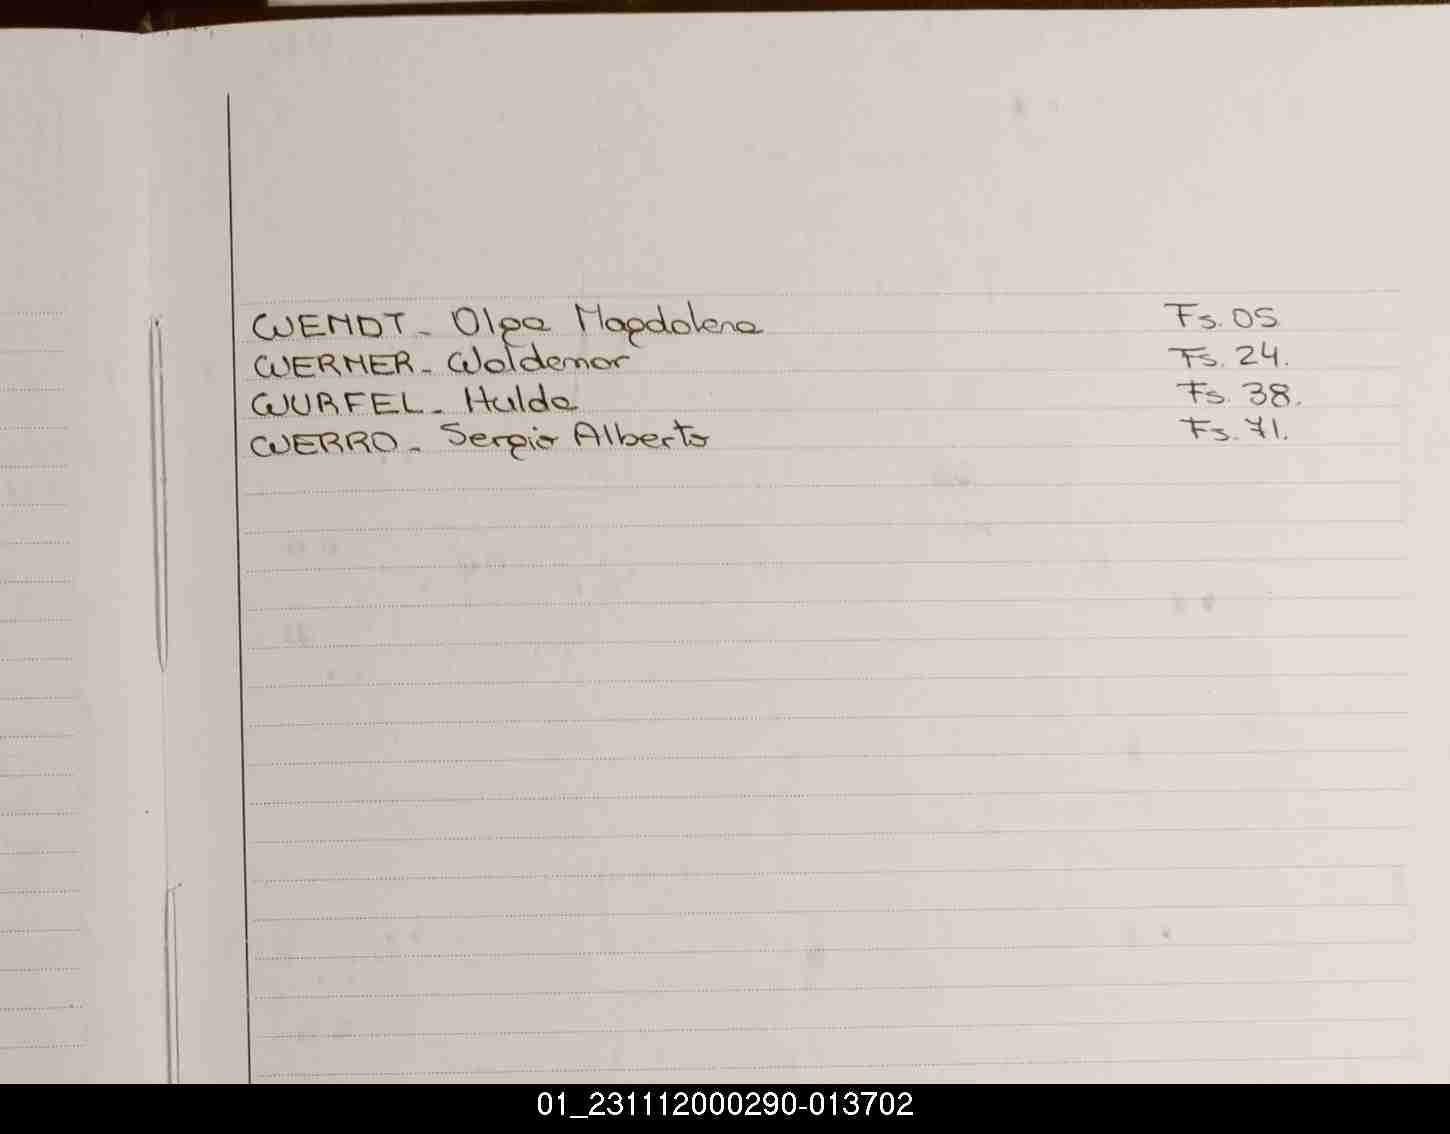 WENDT - Olga Magdalena Fs. 05
WERNER - Waldemar Fs. 24.
WURFEL - Hulda Fs. 38.
WERRO - Sergio Alberto Fs. 71.
01_231112000290-013702